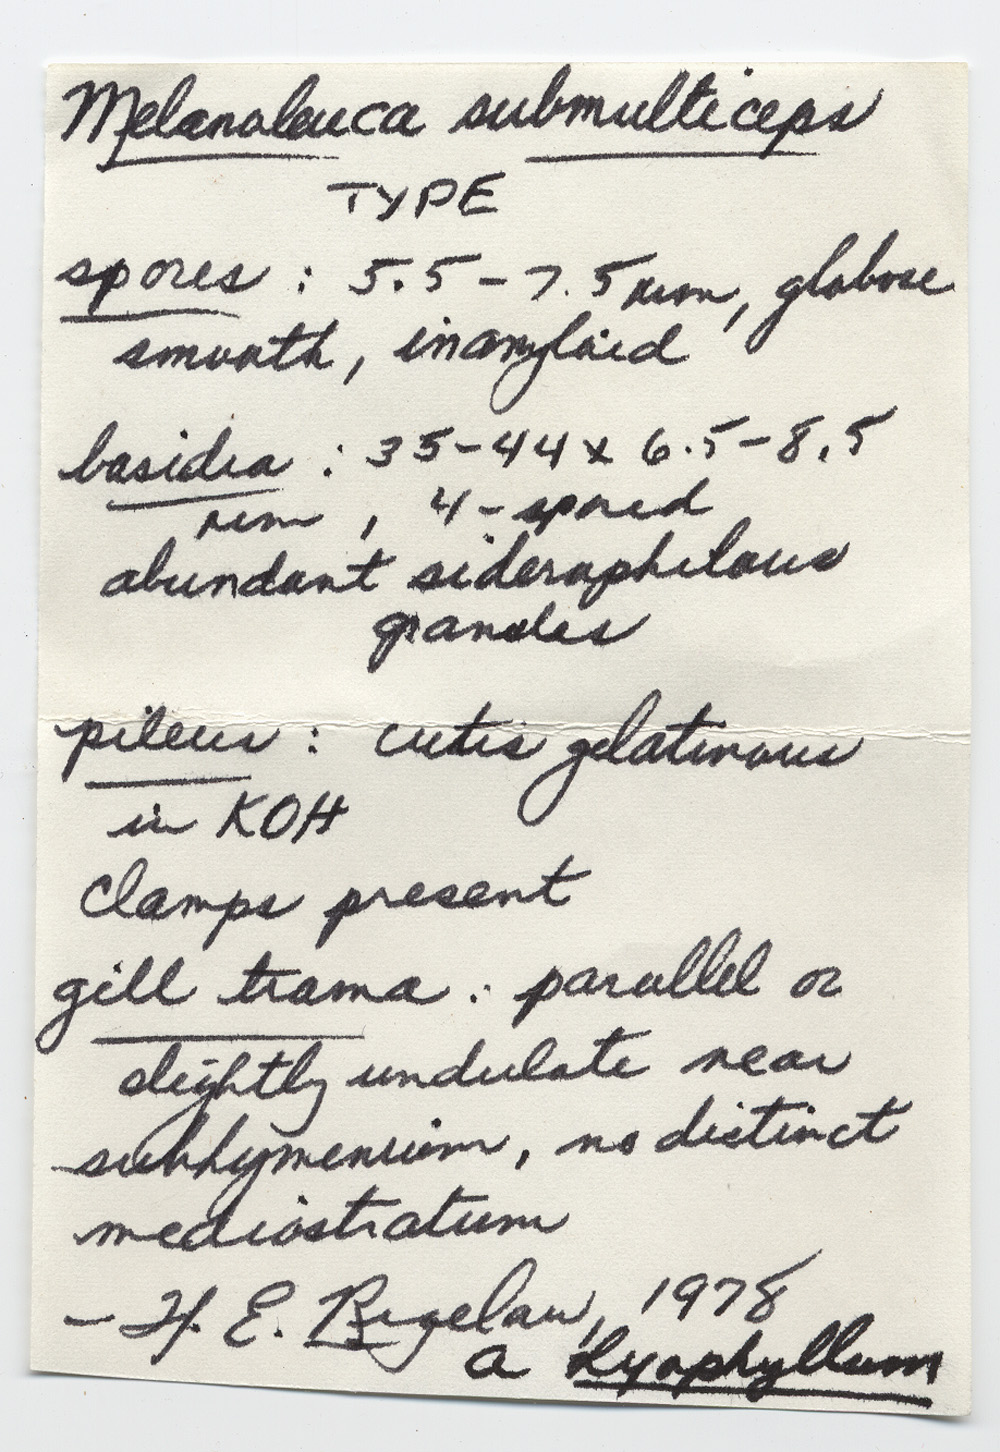 Melanoleuca submulticeps
TYPE
spores: 5.5-7.5 µm, globose
smooth, inamyloid
basidia: 35-44 x 6.5-8.5
µm, 4-spored
abundant siderophilous
granules
pileus: cutis gelatinous
in KOH
Clamps present
gill trama: parallel or
slightly undulate near
subhymenium, no distinct
mediostratum
- H. E. Bigelow, 1978
a Lyophyllum